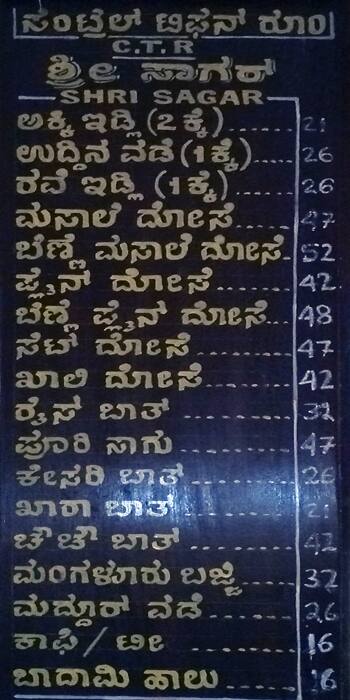 ಸೆಂಟ್ರೆಲ್ ಟಿಫನ್ ರೂಂ
C.T.R
ಶ್ರೀ ಸಾಗರ್
SHRI SAGAR
ಅಕ್ಕಿ ಇಡ್ಲಿ (2 ಕ್ಕೆ)....... 21
ಉದ್ದಿನ ವಡೆ (1 ಕ್ಕೆ)..... 26
ರವೆ ಇಡ್ಲಿ (1 ಕ್ಕೆ)....... 26
ಮಸಾಲೆ ದೋಸೆ...... 47
ಬೆಣ್ಣೆ ಮಸಾಲೆ ದೋಸೆ.. 52
ಪ್ಲೈನ್ ದೋಸೆ........ 42
ಬೆಣ್ಣೆ ಪ್ಲೈನ್ ದೋಸೆ.... 48
ಸೆಟ್ ದೋಸೆ......... 47
ಖಾಲಿ ದೋಸೆ......... 42
ರೈಸ್ ಬಾತ್ .......... 32
ಪೂರಿ ಸಾಗು ......... 47
ಕೇಸರಿ ಬಾತ್ ......... 26
ಖಾರಾ ಬಾತ್ .......... 21
ಚೌಚೌ ಬಾತ್ .......... 42
ಮಂಗಳೂರು ಬಜ್ಜಿ...... 32
ಮದ್ದೂರ್ ವಡೆ ....... 26
ಕಾಫಿ / ಟೀ .......... 16
ಬಾದಾಮಿ ಹಾಲು ....... 16